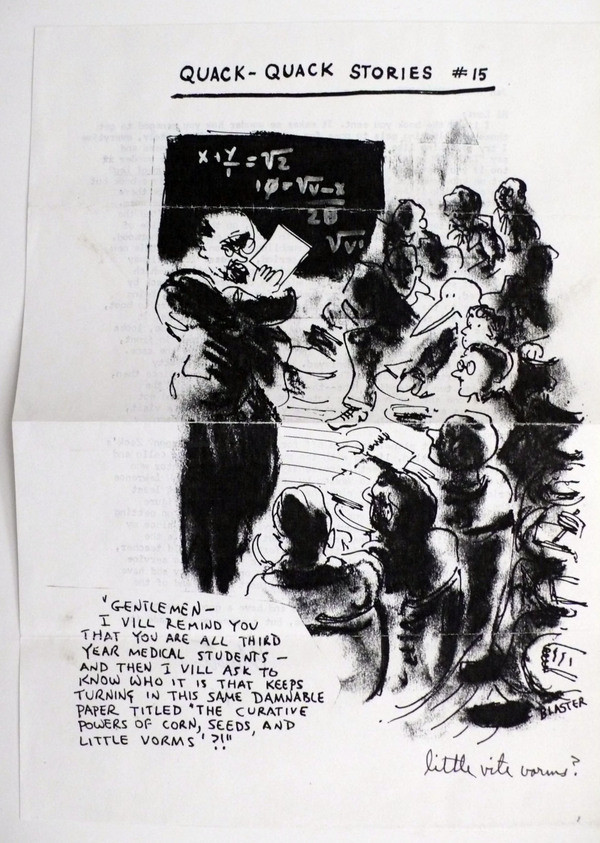 QUACK-QUACK STORIES #15
X + Y/1 = √2
10 = √V-X
20
√V
"GENTLEMEN—
I VILL REMIND YOU
THAT YOU ARE ALL THIRD
YEAR MEDICAL STUDENTS —
AND THEN I VILL ASK TO
KNOW WHO IT IS THAT KEEPS
TURNING IN THIS SAME DAMNABLE
PAPER TITLED "THE CURATIVE
POWERS OF CORN, SEEDS, AND
LITTLE VORMS" ?!"
BLASTER
little vite vorms?